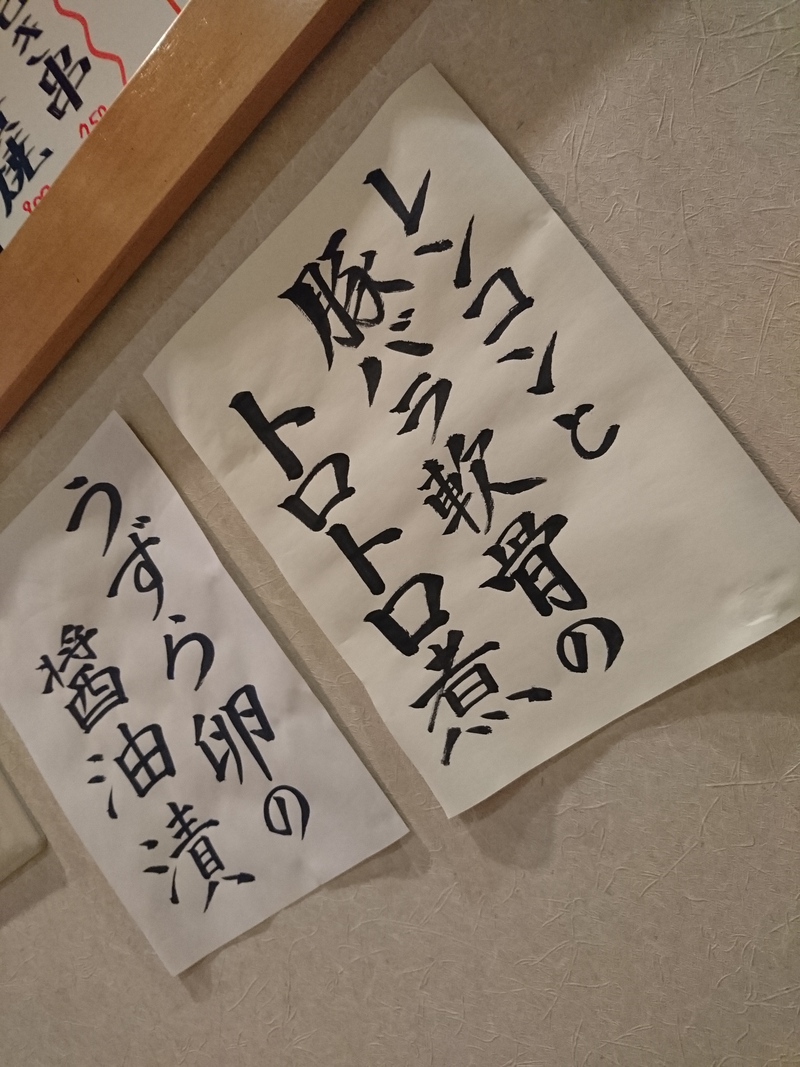 レンコンと
豚バラ軟骨の
トロトロ煮
うずら卵の
醤油漬
串
250
焼
800